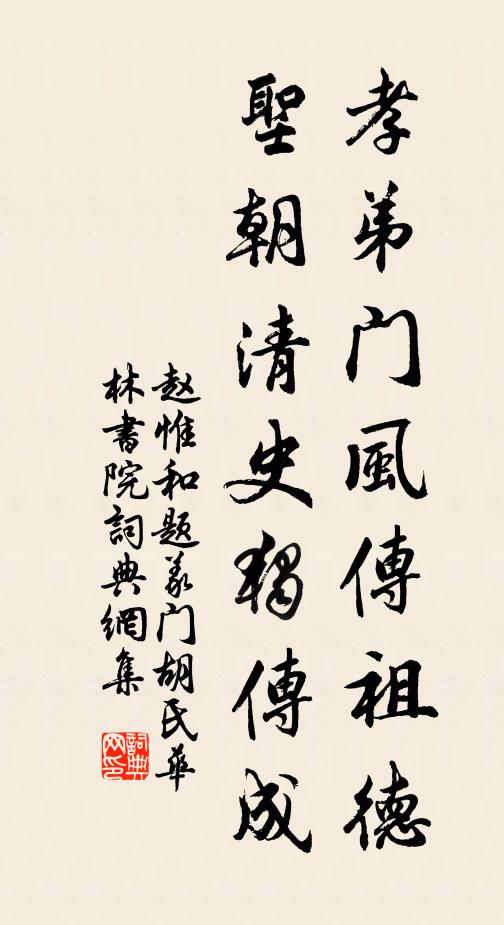 孝弟門風傳祖德
聖朝清史獨傳成
赵惟和题义门胡氏華
林書院詞典網集
詞典网印